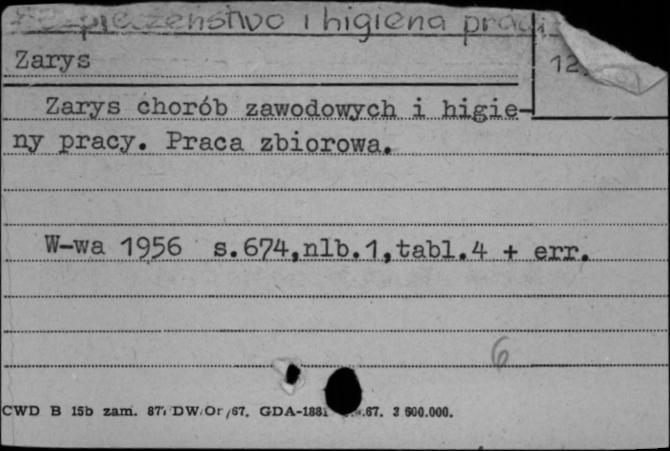 Bezpieczeństwo i higiena pracy
Zarys
12
Zarys chorób zawodowych i higie-
ny pracy. Praca zbiorowa.
W-wa 1956 s.674,nlb.1,tabl.4 + err.
6
CWD B 15b zam. 87 DW/Or/67. GDA-1881 .67. 3 600.000.